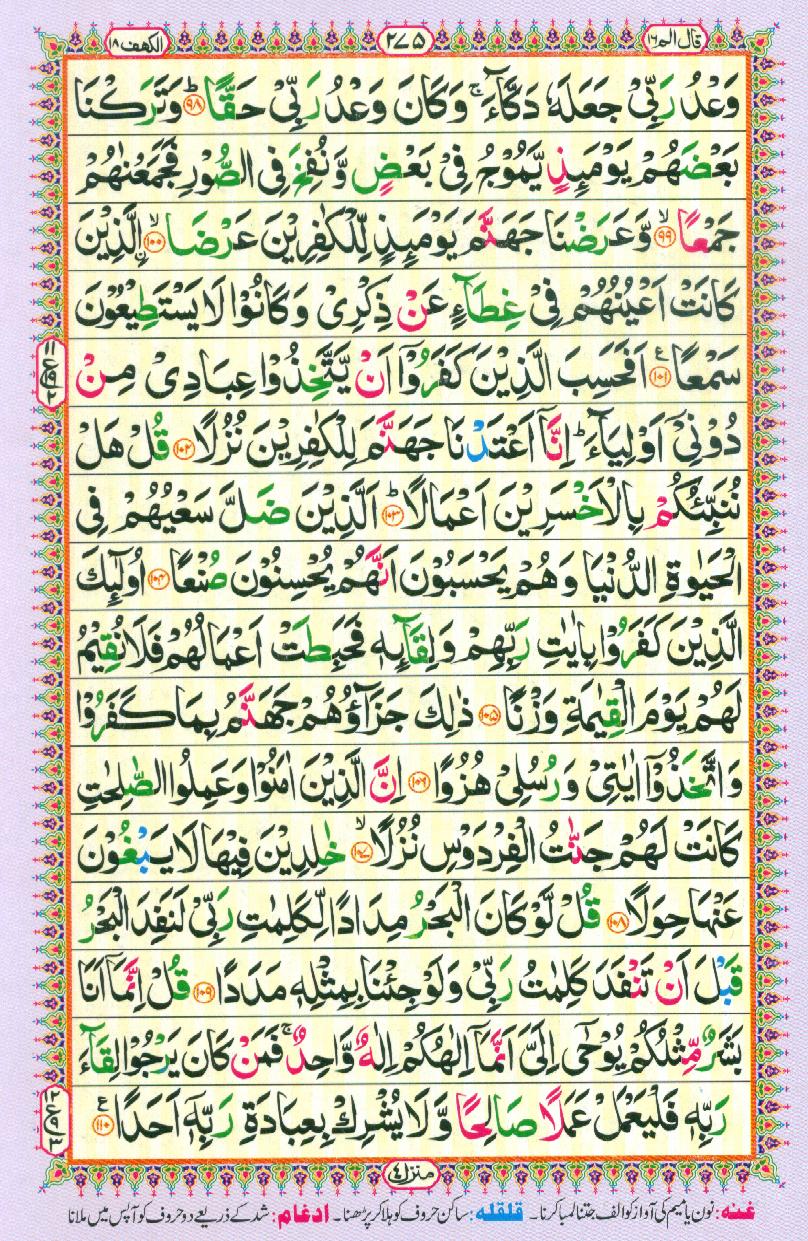 قال الم ۱۶
۲۷۵
الكهف ۱۸
وَعْدُ رَبِّیْ جَعَلَهٗ دَكَّآءَ ۚ وَكَانَ وَعْدُ رَبِّیْ حَقًّا ؕ ﴿۹۸﴾ وَتَرَكْنَا
بَعْضَهُمْ یَوْمَىِٕذٍ یَّمُوْجُ فِیْ بَعْضٍ وَّنُفِخَ فِی الصُّوْرِ فَجَمَعْنٰهُمْ
جَمْعًا ۙ ﴿۹۹﴾ وَّعَرَضْنَا جَهَنَّمَ یَوْمَىِٕذٍ لِّلْكٰفِرِیْنَ عَرْضَا ۙ ﴿۱۰۰﴾ ِ۟الَّذِیْنَ
كَانَتْ اَعْیُنُهُمْ فِیْ غِطَآءٍ عَنْ ذِكْرِیْ وَكَانُوْا لَا یَسْتَطِیْعُوْنَ
سَمْعًا ﴿۱۰۱﴾ ع اَفَحَسِبَ الَّذِیْنَ كَفَرُوْۤا اَنْ یَّتَّخِذُوْا عِبَادِیْ مِنْ
دُوْنِیْۤ اَوْلِیَآءَ ؕ اِنَّاۤ اَعْتَدْنَا جَهَنَّمَ لِلْكٰفِرِیْنَ نُزُلًا ﴿۱۰۲﴾ قُلْ هَلْ
نُنَبِّئُكُمْ بِالْاَخْسَرِیْنَ اَعْمَالًا ؕ ﴿۱۰۳﴾ اَلَّذِیْنَ ضَلَّ سَعْیُهُمْ فِی
الْحَیٰوةِ الدُّنْیَا وَهُمْ یَحْسَبُوْنَ اَنَّهُمْ یُحْسِنُوْنَ صُنْعًا ﴿۱۰۴﴾ اُولٰٓىِٕكَ
الَّذِیْنَ كَفَرُوْا بِاٰیٰتِ رَبِّهِمْ وَلِقَآىِٕهٖ فَحَبِطَتْ اَعْمَالُهُمْ فَلَا نُقِیْمُ
لَهُمْ یَوْمَ الْقِیٰمَةِ وَزْنًا ﴿۱۰۵﴾ ذٰلِكَ جَزَآؤُهُمْ جَهَنَّمُ بِمَا كَفَرُوْا
وَاتَّخَذُوْۤا اٰیٰتِیْ وَرُسُلِیْ هُزُوًا ﴿۱۰۶﴾ اِنَّ الَّذِیْنَ اٰمَنُوْا وَعَمِلُوا الصّٰلِحٰتِ
كَانَتْ لَهُمْ جَنّٰتُ الْفِرْدَوْسِ نُزُلًا ۙ ﴿۱۰۷﴾ خٰلِدِیْنَ فِیْهَا لَا یَبْغُوْنَ
عَنْهَا حِوَلًا ﴿۱۰۸﴾ قُلْ لَّوْ كَانَ الْبَحْرُ مِدَادًا لِّكَلِمٰتِ رَبِّیْ لَنَفِدَ الْبَحْرُ
قَبْلَ اَنْ تَنْفَدَ كَلِمٰتُ رَبِّیْ وَلَوْ جِئْنَا بِمِثْلِهٖ مَدَدًا ﴿۱۰۹﴾ قُلْ اِنَّمَاۤ اَنَا
بَشَرٌ مِّثْلُكُمْ یُوْحٰۤی اِلَیَّ اَنَّمَاۤ اِلٰهُكُمْ اِلٰهٌ وَّاحِدٌ ۚ فَمَنْ كَانَ یَرْجُوْا لِقَآءَ
رَبِّهٖ فَلْیَعْمَلْ عَمَلًا صَالِحًا وَّلَا یُشْرِكْ بِعِبَادَةِ رَبِّهٖۤ اَحَدًا ﴿۱۱۰﴾ ع
منزل ۴
غنه: نون یا میم کی آواز کو الف جتنا لمبا کرنا۔ قلقله: ساکن حروف کو ہلا کر پڑھنا۔ ادغام: شد کے ذریعے دو حروف کو آپس میں ملانا